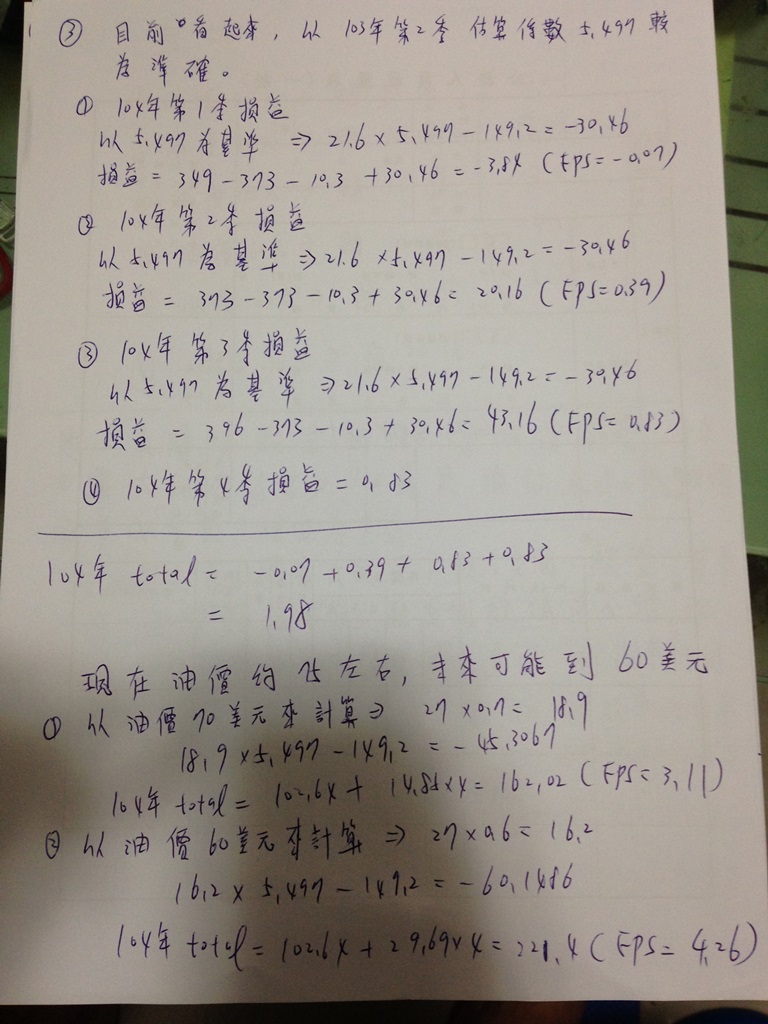 ③ 目前看起來, 以 103年第2季 估算係數 5.497 較
為準確。
① 104年第1季損益
以 5.497 為基準 ⇒ 21.6 × 5.497 - 149.2 = -30.46
損益 = 349 - 373 - 10.3 + 30.46 = -3.84 (EPS = -0.07)
② 104年第2季損益
以 5.497 為基準 ⇒ 21.6 × 5.497 - 149.2 = -30.46
損益 = 373 - 373 - 10.3 + 30.46 = 20.16 (EPS = 0.39)
③ 104年第3季損益
以 5.497 為基準 ⇒ 21.6 × 5.497 - 149.2 = -30.46
損益 = 396 - 373 - 10.3 + 30.46 = 43.16 (EPS = 0.83)
④ 104年第4季損益 = 0.83
104年 total = -0.07 + 0.39 + 0.83 + 0.83
= 1.98
現在油價約 75 左右, 未來可能到 60 美元
① 以油價 70 美元來計算 ⇒ 27 × 0.7 = 18.9
18.9 × 5.497 - 149.2 = -45.3067
104年 total = 102.64 + 14.85 × 4 = 162.02 (EPS = 3.11)
② 以油價 60 美元來計算 ⇒ 27 × 0.6 = 16.2
16.2 × 5.497 - 149.2 = -60.1486
104年 total = 102.64 + 29.69 × 4 = 221.4 (EPS = 4.26)